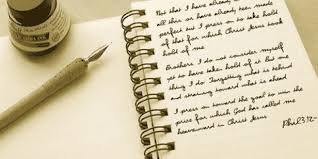 Not that I have already
all this or have already been made
perfect but I press on to take hold
of that for which Christ Jesus took
hold of me
Brothers I do not consider myself
yet to have taken hold of it but one
thing I do Forgetting what is behind
and straining toward what is ahead
I press on toward the goal to win the
prize for which God has called me
heavenward in Christ Jesus
Phil 3:12-